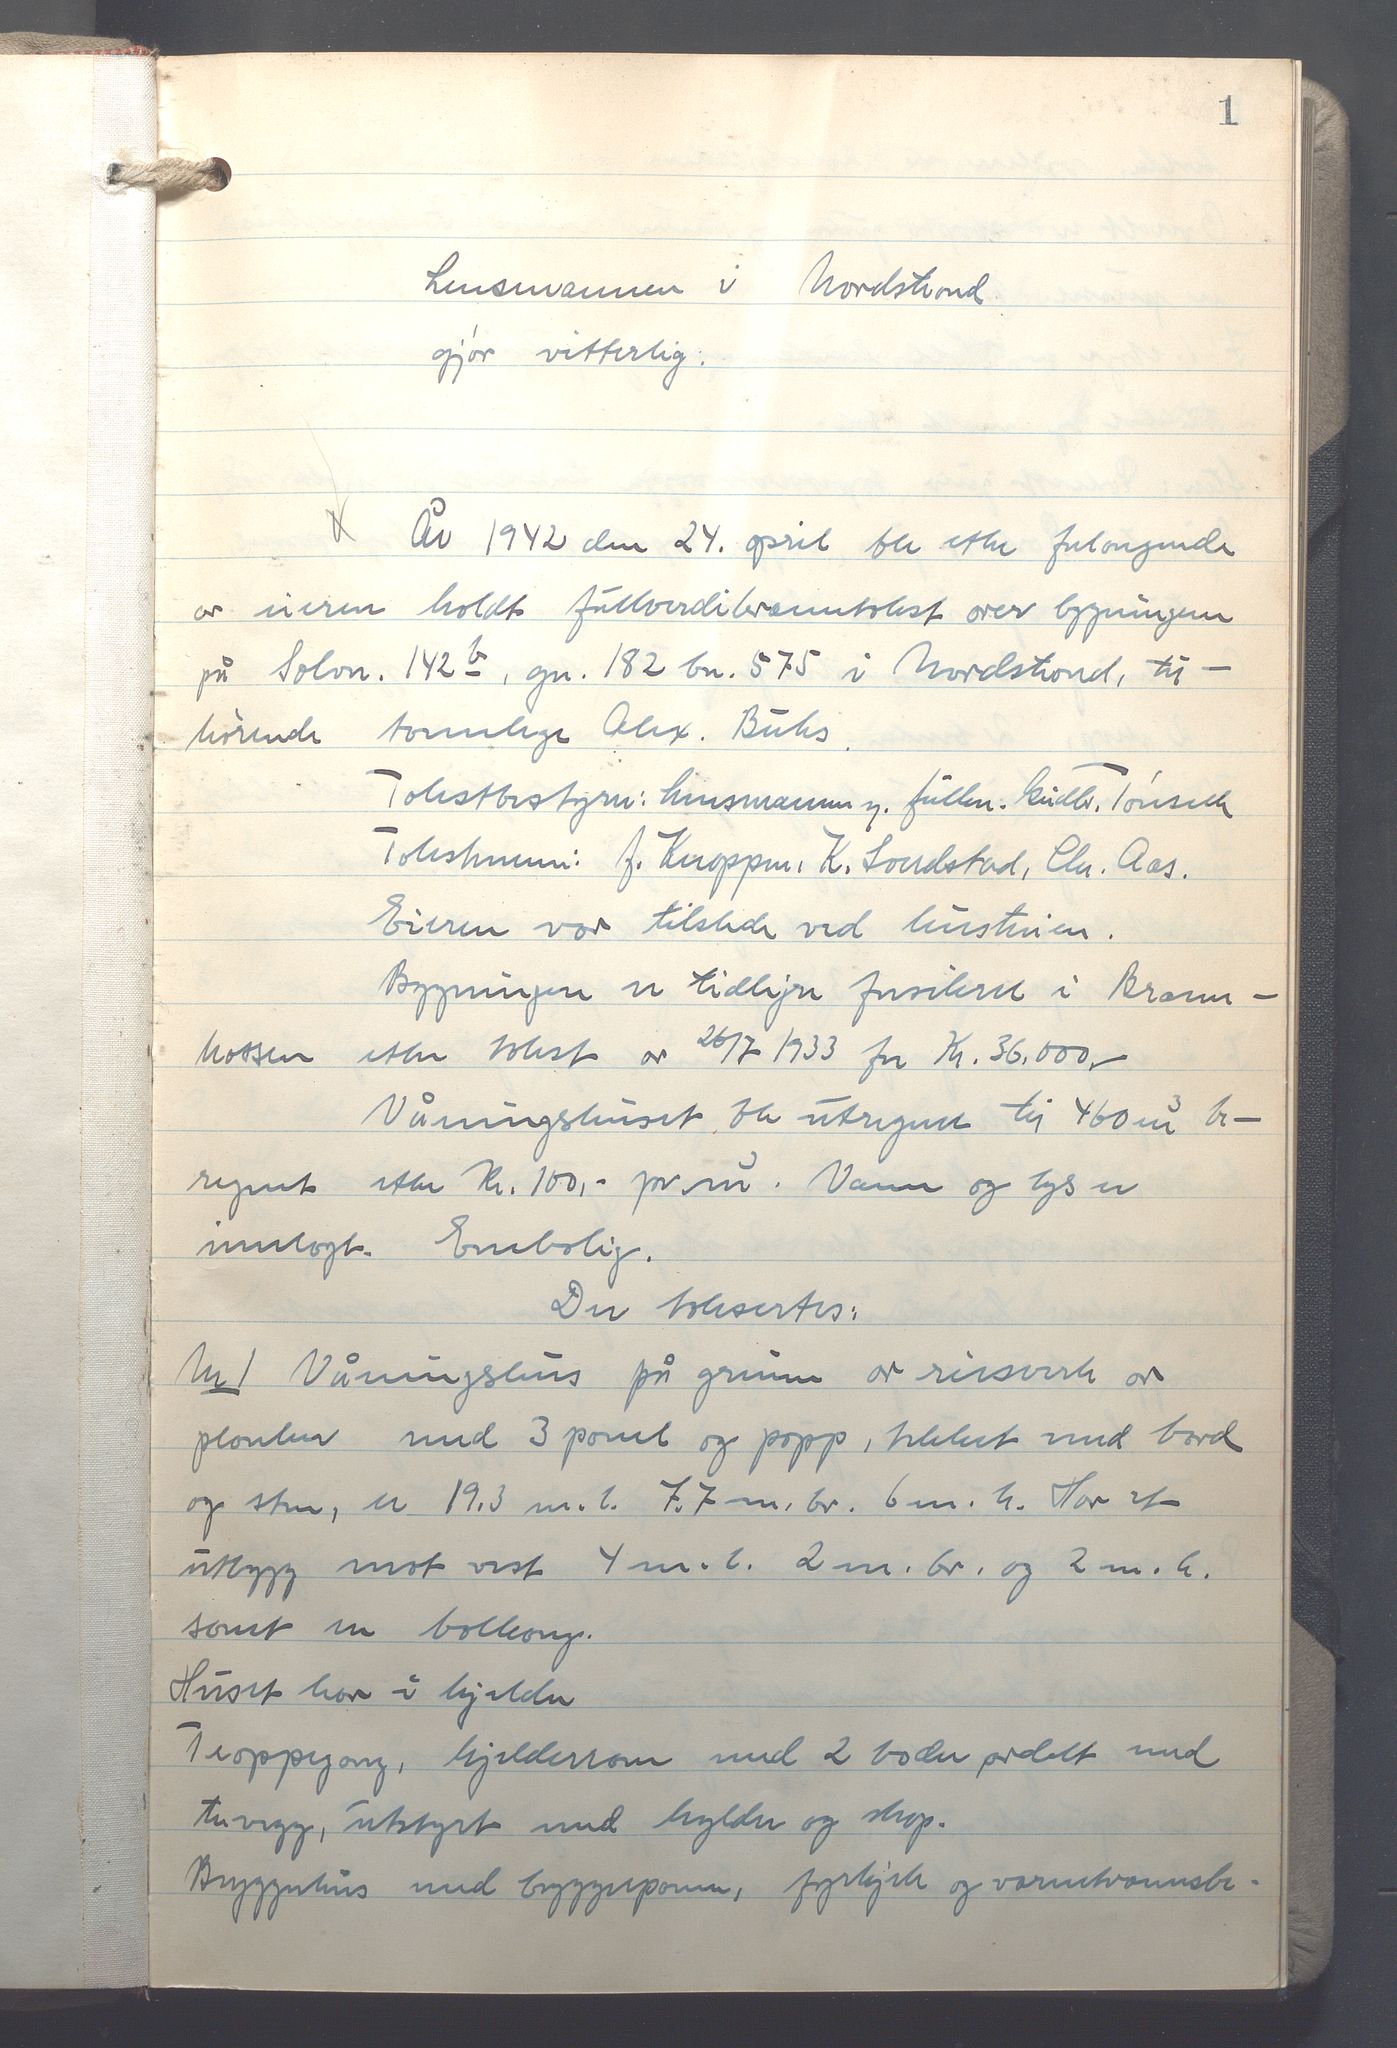 1
Lensmannen i Nordstrand
gjør vitterlig:
År 1942 den 24. april ble etter forlangende
av eieren holdt fullverdibranntakst over bygningen
på Solvn. 142 b, gn. 182 bn. 575 i Nordstrand, til-
hørende tannlege Alex. Buhs.
Takstbestyrer: lensmannen v. fullm. Gudbr. Tønseth
Takstmenn: J. Knappen, K. Sandstad, Chr. Aas.
Eieren var tilstede ved hustruen.
Bygningen er tidligere forsikret i Brann-
kassen etter takst av 26/7 1933 for Kr. 36.000,-
Våningshuset ble utregnet til 460 m³ be-
regnet etter Kr. 100,- pr. m³. Vann og lys er
innlagt. Enebolig.
Der takseres:
Nr 1 Våningshus på grunn av reisverk av
planker med 3 panel og papp, tekket med bord
og sten, er 19.3 m. l. 7.7 m. br. 6 m. h. Har et
utbygg mot vest 4 m. l. 2 m. br. og 2 m. h.
samt en balkong.
Huset har i kjelder
Treoppgang, kjelderrom med 2 boder, avdelt med
trevegg, utstyrt med hylder og skap.
Bryggerhus med bryggepanne, fyrkjele og varmtvannsbe-